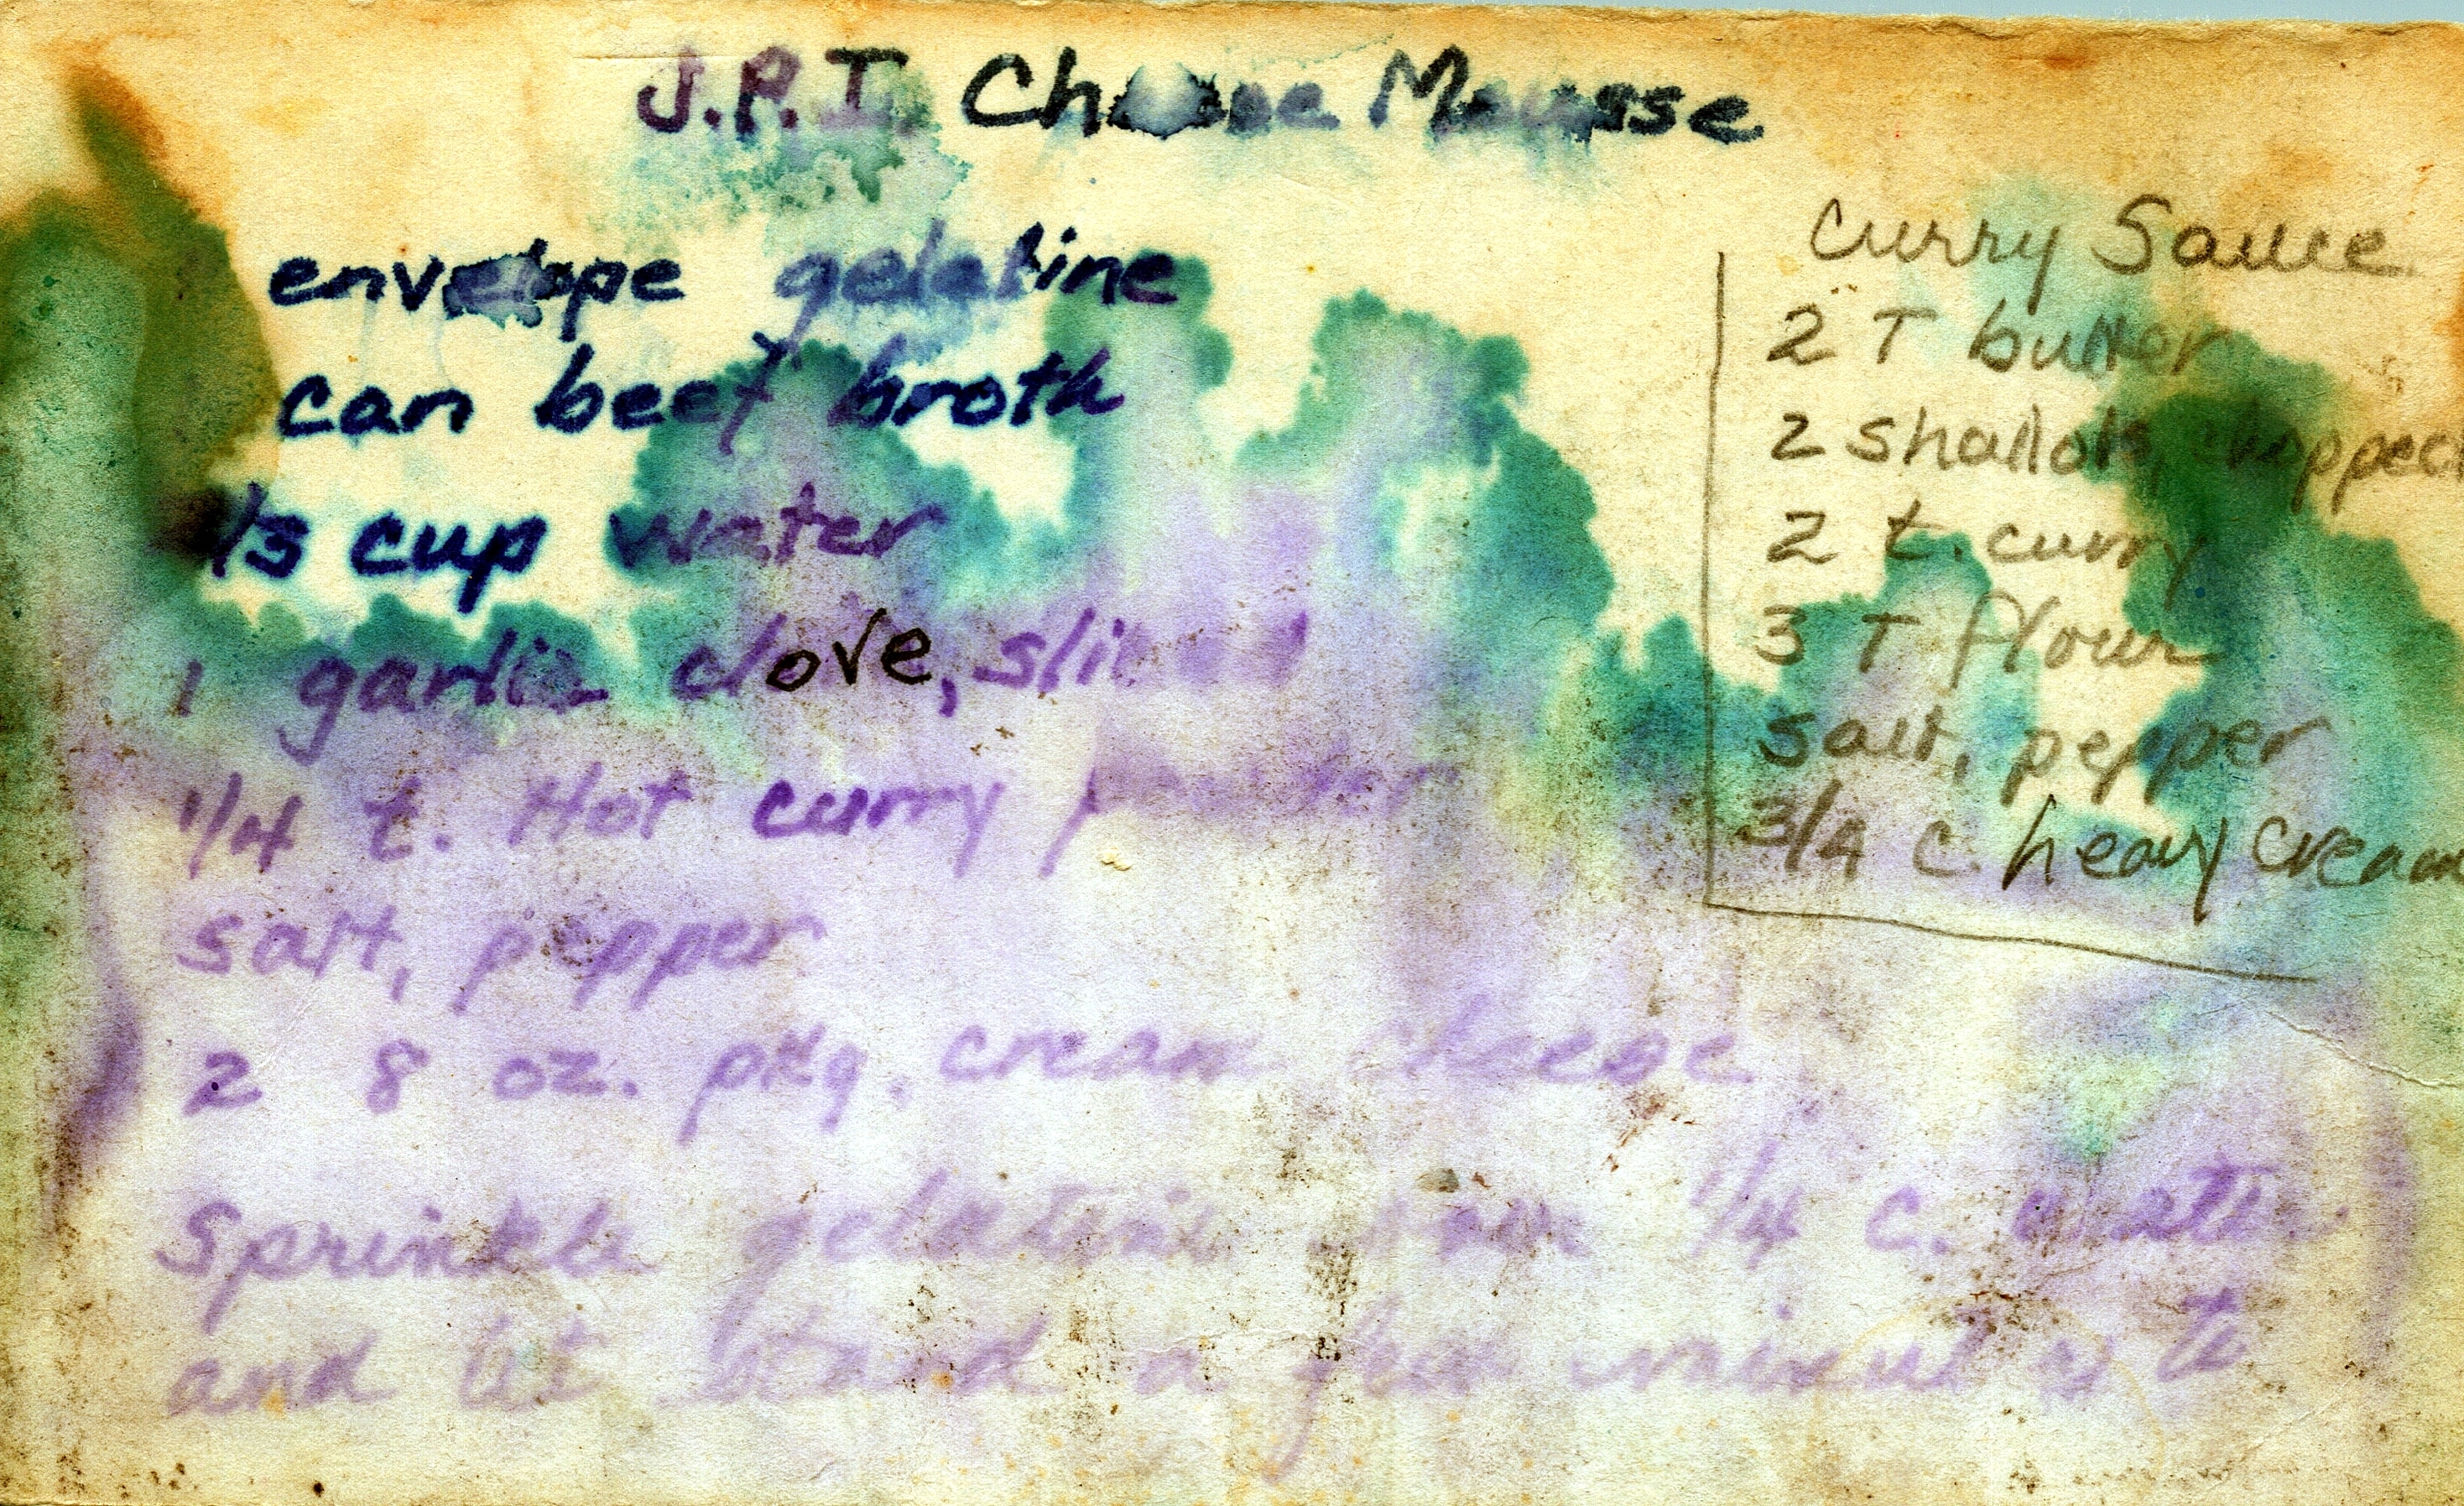 J.P.I. Cheese Mousse
envelope gelatine
can beef broth
1/3 cup water
1 garlic clove, sliced
1/4 t. Hot curry powder
salt, pepper
2 8 oz. pkg. cream cheese
Sprinkle gelatine over 1/4 c. water
and let stand a few minutes to
Curry Sauce
2 T butter
2 shallots, chopped
2 t. curry
3 T flour
salt, pepper
3/4 c. heavy cream